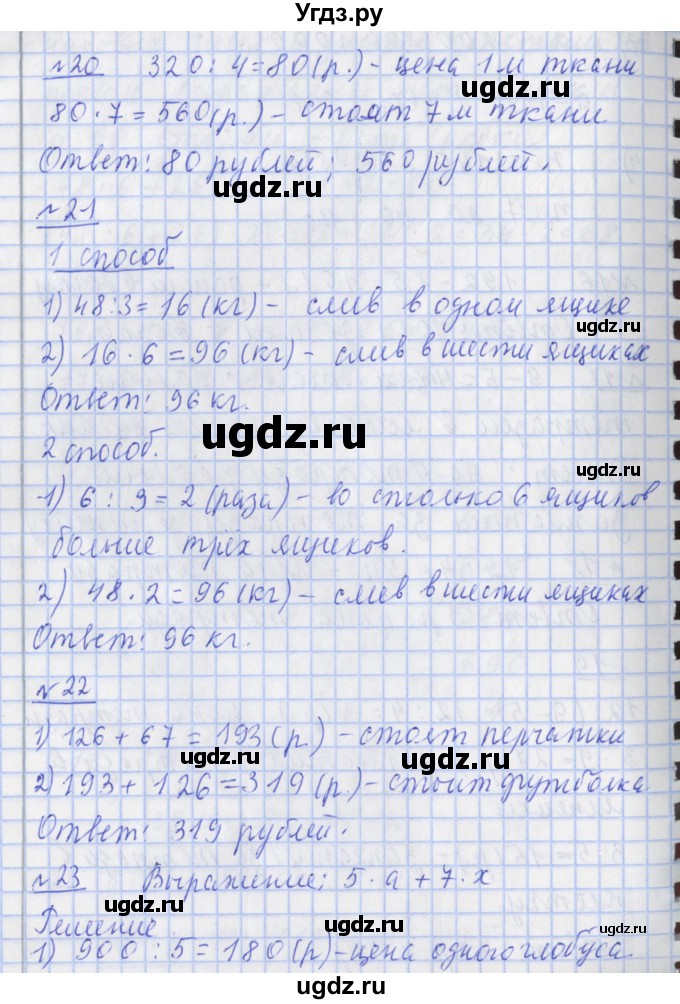 Угдз.ру
№20 320 : 4 = 80 (р.) – цена 1 м ткани
ugdz.ru
80 · 7 = 560 (р.) – стоят 7 м ткани
ugdz.ru
Ответ: 80 рублей; 560 рублей.
ugdz.ru
№21
1 способ
1) 48 : 3 = 16 (кг) – слив в одном ящике
ugdz.ru
2) 16 · 6 = 96 (кг) – слив в шести ящиках
Ответ: 96 кг.
ugdz.ru
2 способ.
ugdz.ru
1) 6 : 3 = 2 (раза) – во столько 6 ящиков
больше трёх ящиков.
2) 48 · 2 = 96 (кг) – слив в шести ящиках
ugdz.ru
Ответ: 96 кг.
ugdz.ru
№22
1) 126 + 67 = 193 (р.) – стоят перчатки
ugdz.ru
ugdz.ru
2) 193 + 126 = 319 (р.) – стоит футболка
Ответ: 319 рублей.
№23 Выражение: 5 · а + 7 · х
ugdz.ru
ugdz.ru
Решение.
1) 900 : 5 = 180 (р) – цена одного глобуса.
ugdz.ru